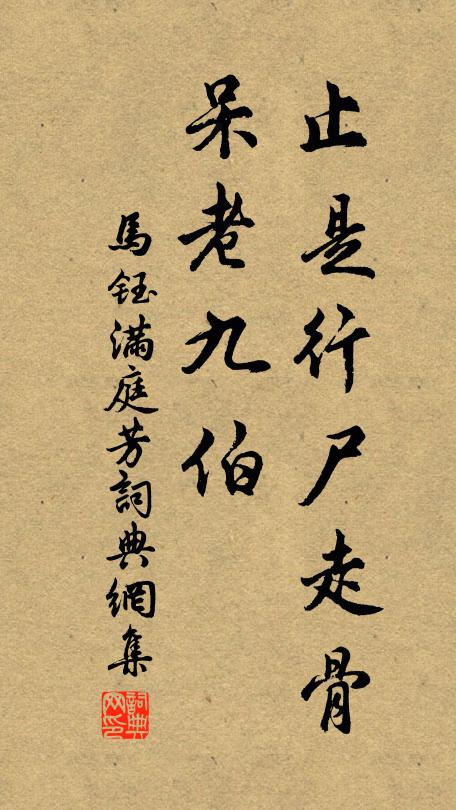 止是行尸走骨
呆老九伯
馬鈺滿庭芳詞典網集
詞典网印